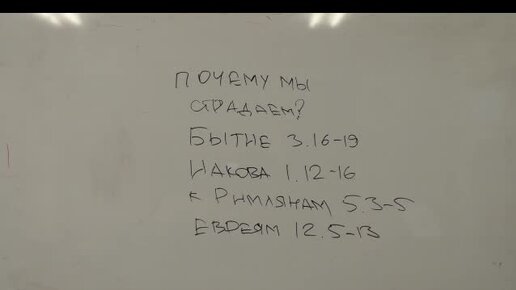 ПОЧЕМУ МЫ
СТРАДАЕМ?
БЫТИЕ 3.16-19
ИАКОВА 1.12-16
К РИМЛЯНАМ 5.3-5
ЕВРЕЯМ 12.5-13